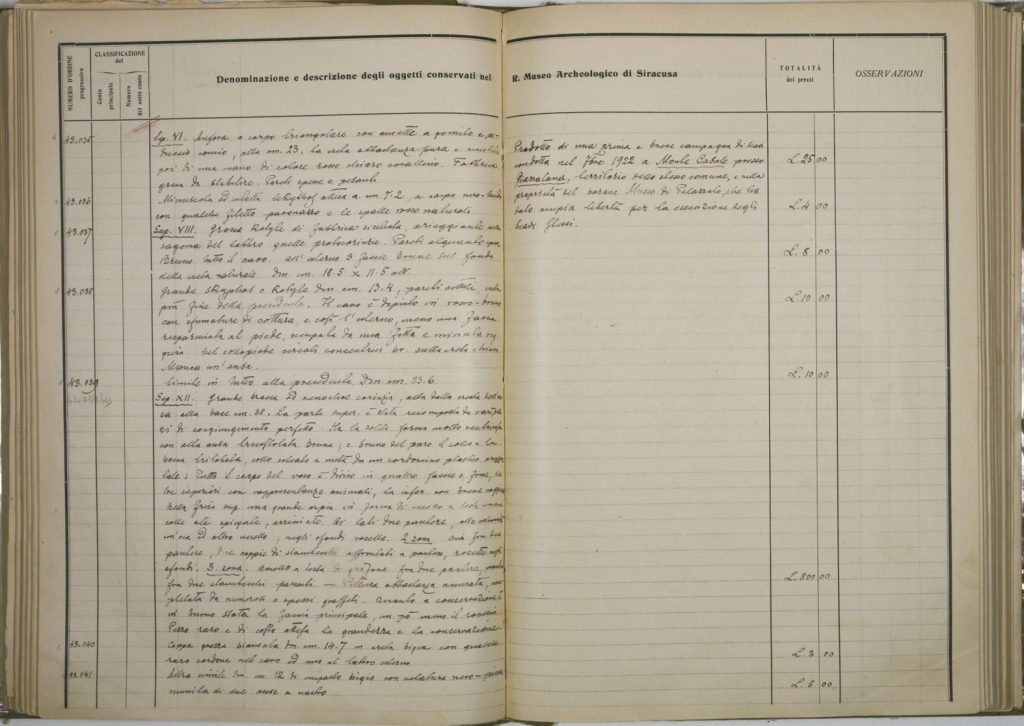 NUMERO D'ORDINE
progressivo
CLASSIFICAZIONE
del
Conto
principale
Numero
del sotto conto
Denominazione e descrizione degli oggetti conservati nel
R. Museo Archeologico di Siracusa
TOTALITÀ
dei prezzi
OSSERVAZIONI
43.035
Sep. VI. Anfora a corpo triangolare con ansette a gomito e
duccio conico, alta cm. 23. La creta abbastanza pura e rivestita
poi di una mano di colore roso chiaro cavallino. Fabbrica
greca da stabilire. Pareti spesse e pesanti.
43.036
Minuscola ed imbella lekythos attica a cm. 7.2, a corpo nero-lucido
con qualche filetto paonazzo e le spalle rosso naturale.
43.037
Sep. VIII. Grossa Kotyle di fabbrica siculota, arieggiante nella
sagoma del labbro quelle protocorinzie. Pareti alquanto
Bruno tutto il cavo. all'esterno 3 fascie brune sul fondo
della creta naturale. Dm. cm. 18.5 X 11.5 alt.
43.038
Grande skyphos o Kotyle dm. cm. 13.4, pareti sottili, creta
più fine della precedente. Il cavo è dipinto in rosso-bruno
con sfumature di cottura, e così l'esterno, meno una fascia
risparmiata al piede, occupata da una fitta e minuta
Nel sottopiede cercoli concentrici
Manca un'ansa.
43.039
Simile in tutto alla precedente Dm. cm. 23.6.
Sep. XII. Grande brocca ed oenochoe corinzia, alta dalla cresta dell'an
sa alla base cm. 38. La parte super. è stata ricomposta da vari pez
zi di congiungimento perfetto. Ha la solita forma molto
con alta ansa bruna; e bruno del pari il collo e la
bocca trilobata, collo solcato a metà da un cordoncino plastico
Tutto il corpo del vaso è diviso in quattro fascie o zone, le
tre superiori con rappresentanze animali, la infer. con
Nella fascia sup. una grande arpia in forma di uccello a testa umana
colle ali spiegate, ai lati due pantere,
un'oca ed altro uccello; negli sfondi rosette. 2 zona. fra due
pantere, due coppie di stambecchi affrontati a pantera, rosette negli
sfondi. 3 zona. uccello a testa di grifone fra due pantere,
fra due stambecchi pascenti. — Pittura abbastanza accurata, com
pletata da numerosi e spessi graffiti. Quanto a conservazione è
in buono stato la faccia principale, un pò meno il rovescio.
Pezzo raro e di costo attesa la grandezza e la conservazione.
43.040
Coppa grezza biansata dm. cm. 14.7 in creta bigia con qualche
raro cordone nel cavo ed uno al labbro esterno
43.041
Altra simile dm. cm. 12 di impasto bigio con colatura nero-
munita di due anse a nastro
Prodotto di una prima e breve campagna di scavi
condotta nel 1922 a Monte Casale presso
territorio dello stesso comune, e nella
proprietà del barone Museo di Palazzolo, che ha
dato ampia libertà per la esecuzione degli
scavi stessi.
L. 25 00
L. 4 00
L. 8 00
L. 10 00
L. 10 00
L. 800 00
L. 3 00
L. 5 00